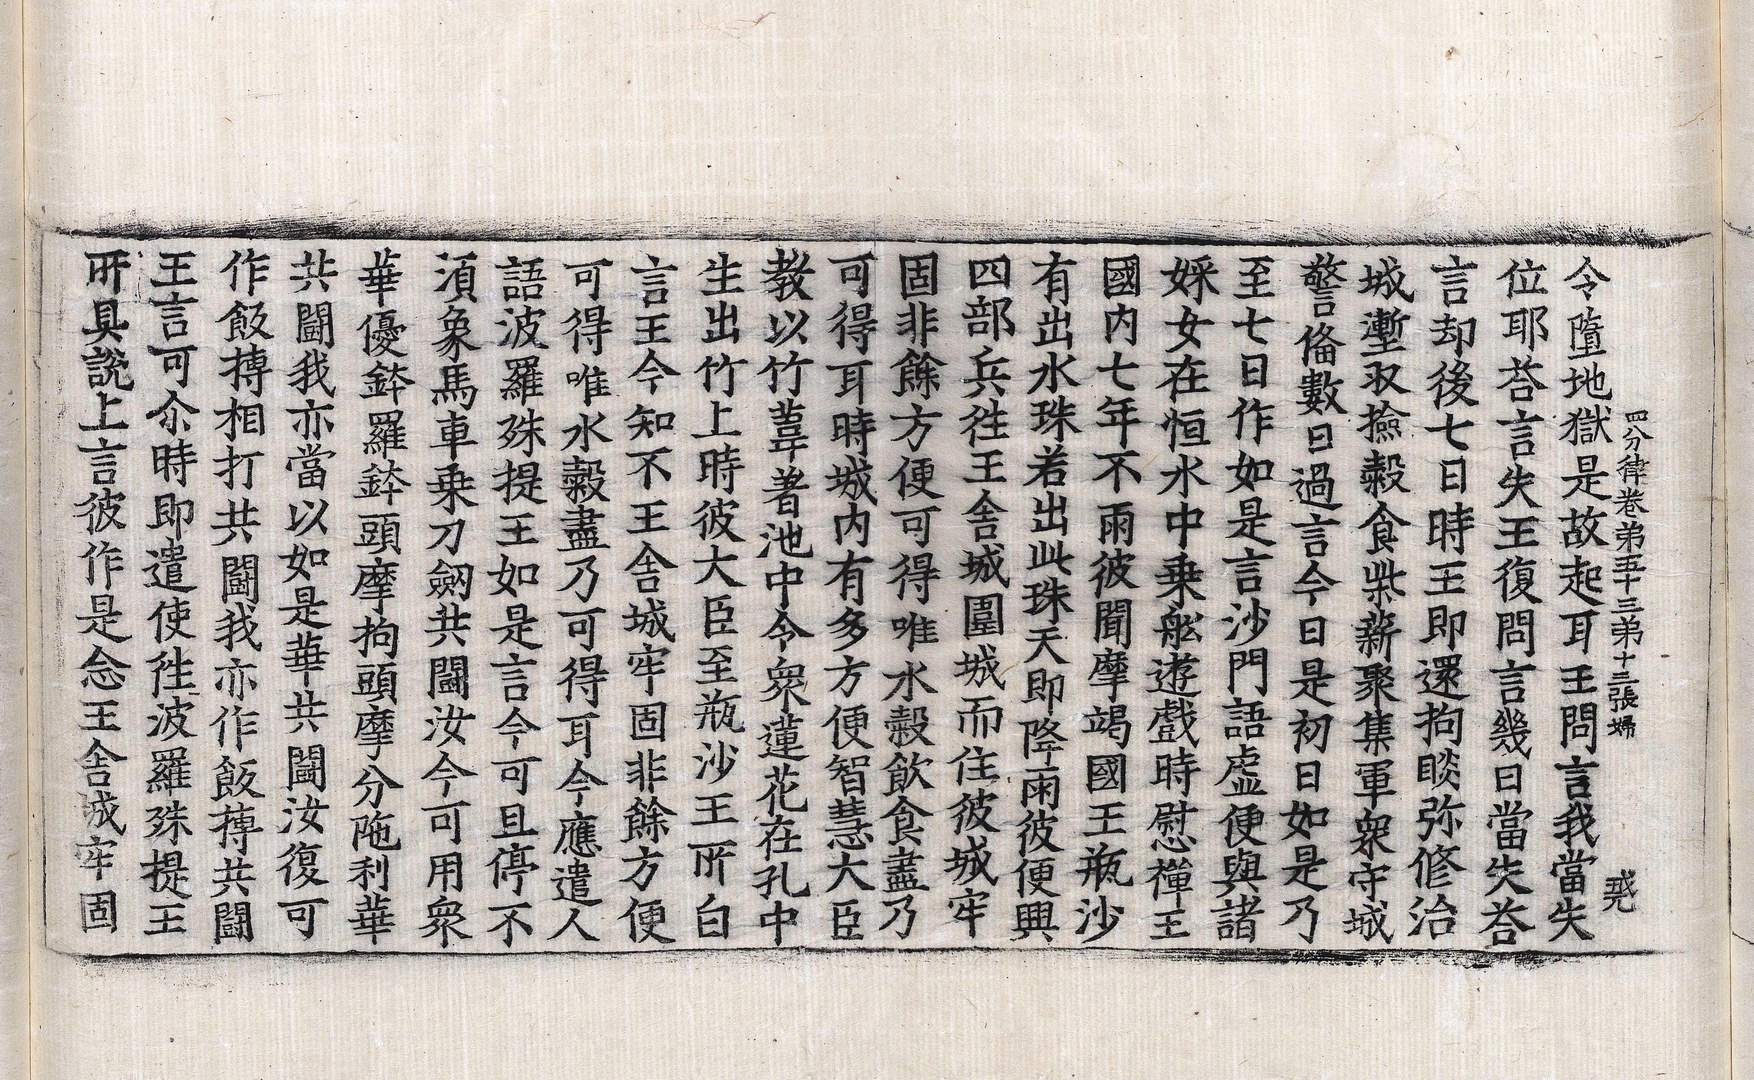 四分律卷第五十三第十三張婦
令墮地獄是故起耳王問言我當失
位耶荅言失王復問言幾日當失荅
言却後七日時王即還拘睒弥修治
城壍収撿穀食柴薪聚集軍衆守城
警俻數日過言今日是初日如是乃
至七日作如是言沙門語虛便與諸
婇女在恒水中乗舩遊戲時慰禪王
國内七年不雨彼聞摩竭國王瓶沙
有出水珠若出此珠天即降雨彼便興
四部兵徃王舎城圍城而住彼城牢
固非餘方便可得唯水穀飲食盡乃
可得耳時城内有多方便智慧大臣
教以竹葦著池中令衆蓮花在孔中
生出竹上時彼大臣至瓶沙王所白
言王今知不王舎城牢固非餘方便
可得唯水穀盡乃可得耳今應遣人
語波羅殊提王如是言今可且停不
湏象馬車乗刀劒共鬪汝今可用衆
華優鉢羅鉢頭摩拘頭摩分陁利華
共鬪我亦當以如是華共鬪汝復可
作飯摶相打共鬪我亦作飯摶共鬪
王言可尒時即遣使徃波羅殊提王
所具說上言彼作是念王舎城牢固